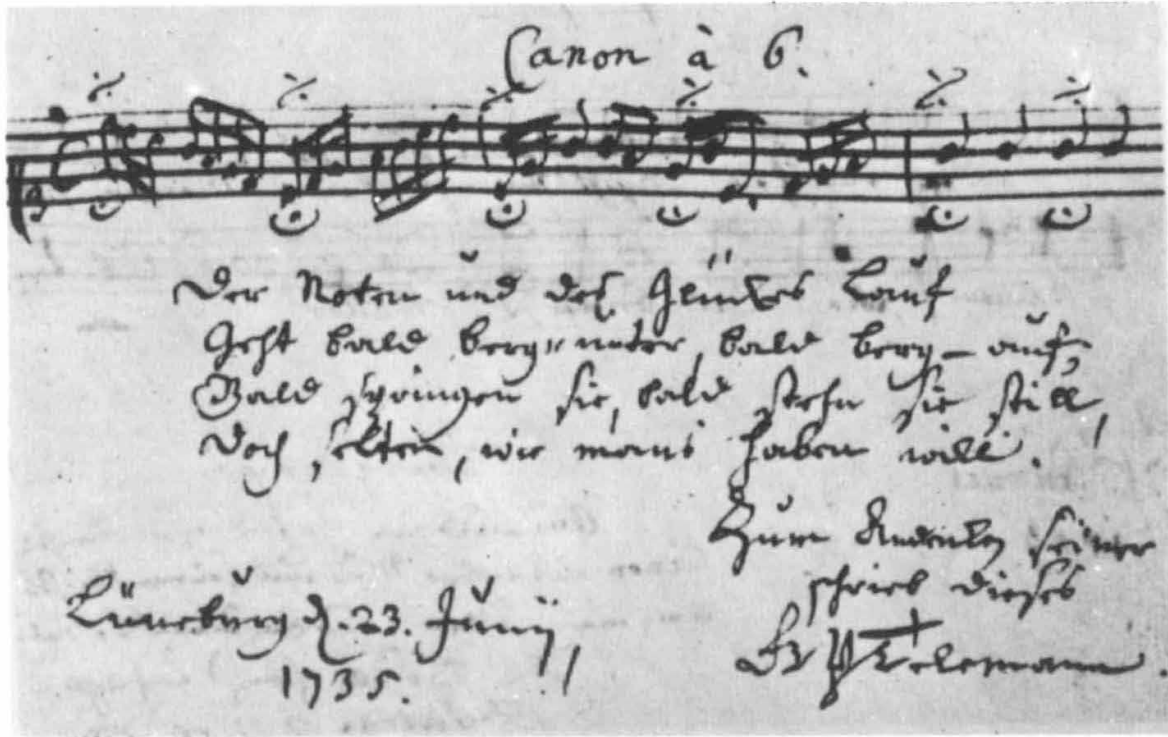 Canon à 6.
Der Noten und des Glückes Lauf
Geht bald berg-unter, bald berg-auf,
Bald springen sie, bald stehn sie still,
Doch selten, wie mans haben will.
Zum Andenken seiner
schrieb dieses
Lüneburg d. 23. Junij,
1735.
GP Telemann.